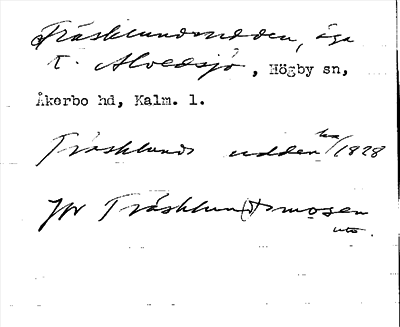 Träsklundsudden, äga
t. Alvedsjö, Högby sn,
Åkerbo hd, Kalm. l.
Träsklunds udden ha/1828
Jfr Träsklun(d)smosen
uto.